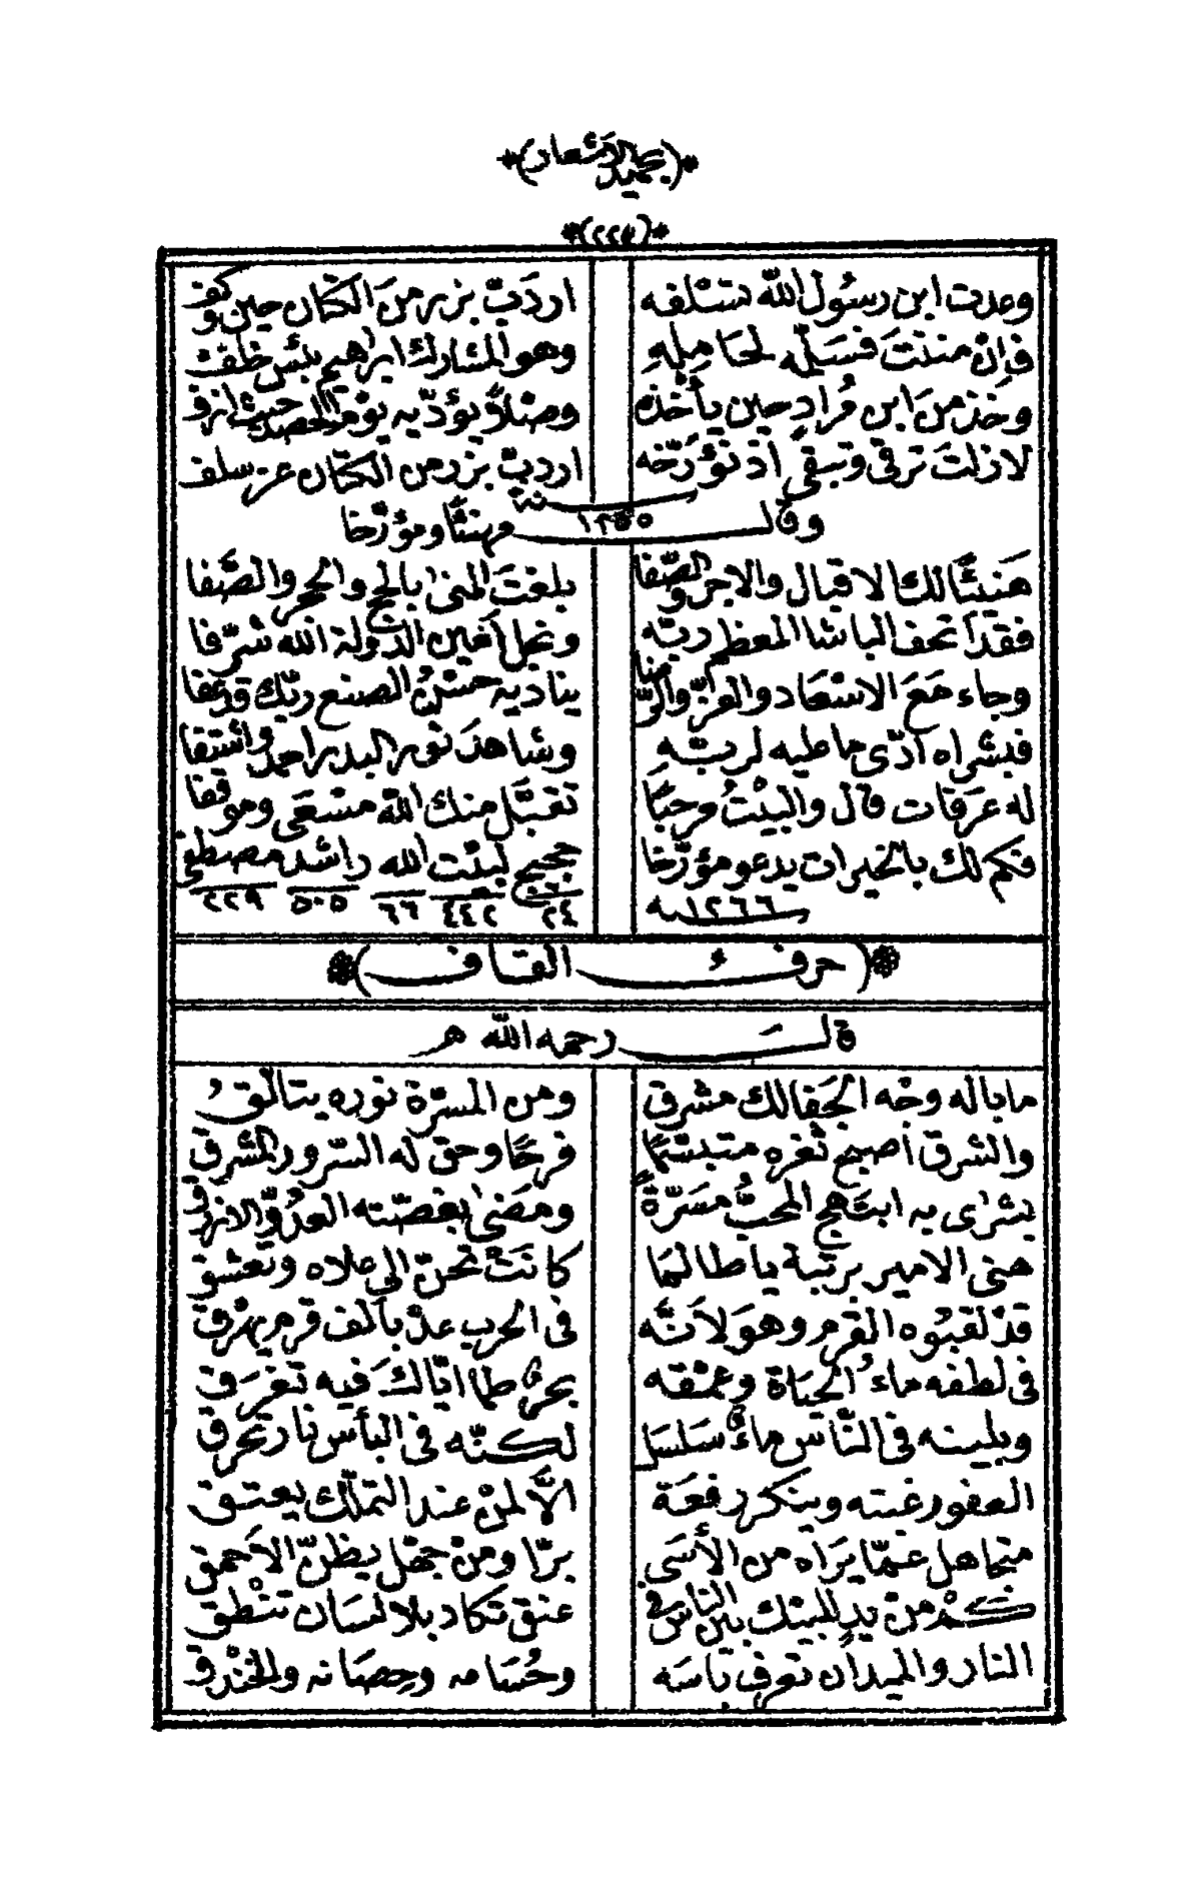 *(بحميد الاشعار)*
*(٢٢٧)*
وعدت ابن رسُول اللّه تستلفه اردَبّ بزر منَ الكتّان حين
فإنْ مننتَ فسَلّمه لحَامِلهِ وهو المشارك ابراهيم بئس خلفت
وخذ منَ ابن مُرادٍ حين يأخذه وصْلاً يؤدّيه يوْم الحصد حيث
لازلتَ ترقى وتبقى اذ نؤرّخه اردبّ بزر من الكتّان عز سلف
سنة ١٢٥٥
وقال مهنئًا ومؤرّخا
هَنيئًا لك الاقبال والاجر والصّفا بلغتَ المنىٰ بالحج والحجر والصّفا
فقد اَتحف الباشا المعظم ربّه ونجل اَمين الدّولة اللّه شرّفا
وجاء مَعَ الاسْعاد والعزّ والرّضا يناديه حسْنُ الصنع ربّك قد عفا
فبشراه ادّى ما عليه لربّهِ وشاهدَ نور البدر احمد واشتفا
له عرَفات قال والبيْتُ مرحبًا تقبّل منك اللّه مسْعَى وموقفا
فكم لك بالخيرات يدعو مؤرّخا حجيج لبيْت اللّه راشد مصطفى
سنة ١٢٦٦ ٢٤ ٤٤٢ ٦٦ ٥٠٥ ٢٢٩
*(حرفُ القاف)*
قالَ رحمه اللّه
ما باله وجْه الجَفا لك مشرق ومن المسرّة نوره يتألّقُ
والشرق اَصبح ثغره متبسّمًا فرحًا وحق له السّرور المشرق
بشرٰى به ابتهج المحبُّ مسَرّةً ومضىٰ بغصّته العدُوّ الازرق
هنى الامير برتبة يا طالما كانتْ تحنّ الى علاه وتعشق
قدْ لقبُوه القرم وهوَ لاَنّه فى الحرب عدْ بألف قرم يهْرق
فى لطفه ماءُ الحيَاة وعمْقه بحرٌ طما ايّاك فيه تغرَق
وبلينه فى النّاس ماءٌ سَلسَل لكنّه فى البأس نار تحرق
العفو رغبته وينكر رفعَة الاّ لمنْ عند التملّك يعتق
متجاهل عمّا يرَاه من الأسَى برّا ومنْ جهْل يظنّ الاَحمق
كمْ منْ يدٍ للبيْتك بين الناس فى عنق تكاد بلا لسَان تنْطق
النار والميدان تعرف بَاسَه وحُسَامه وحِصَانه والخنْدق